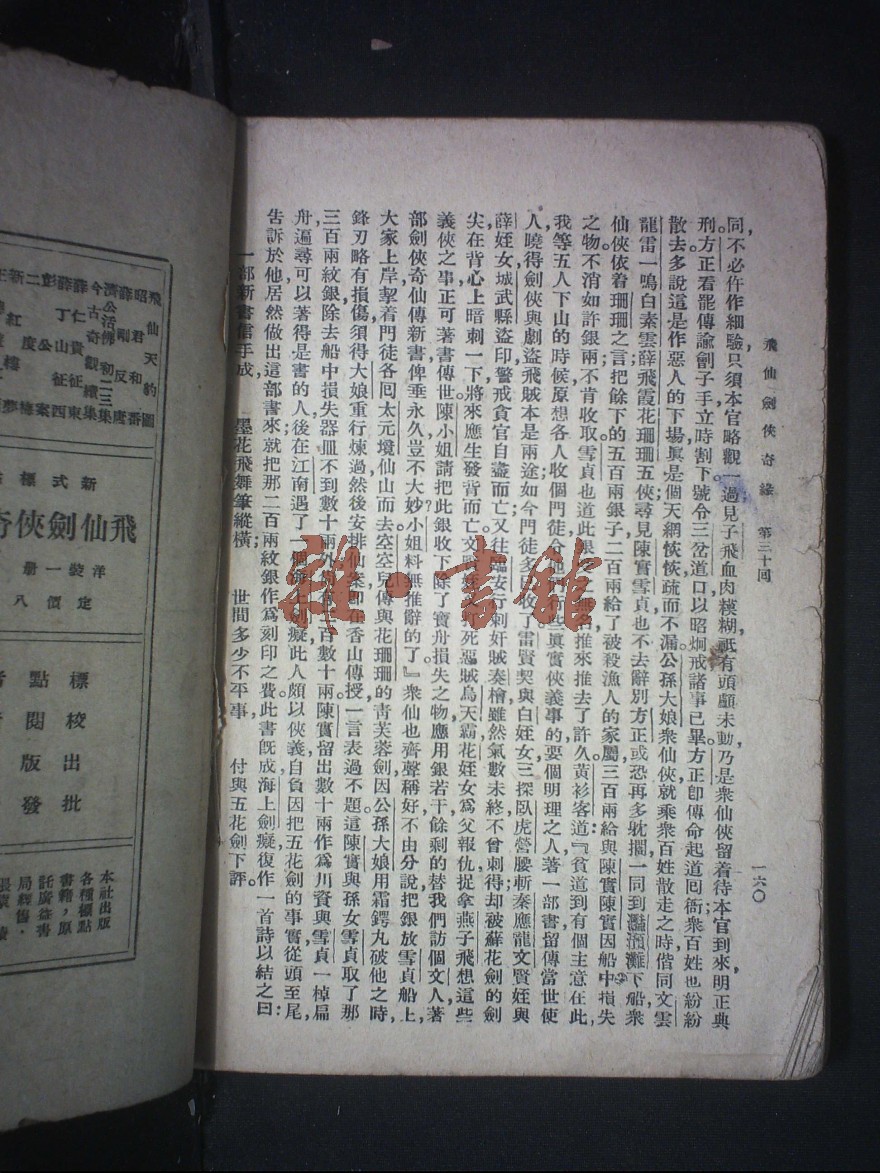 飛仙劍俠奇緣　第三十回
一六〇
同,不必仵作細驗只須本官略觀一過見子飛血肉糢糊,祇有頭顱未動乃是衆仙俠留着待本官到來明正典
刑。方正看罷傳諭劊子手立時割下號令三岔道口以昭烱戒諸事已畢。方正卽傳命起道囘衙衆百姓也紛紛
散去。多說這是作惡人的下場眞是個天網恢恢疏而不漏。公孫大娘衆仙俠就乘衆百姓散走之時偕同文雲
龍雷一鳴白素雲薛飛霞花珊珊五俠尋見陳實雪貞也不去辭別方正或恐再多躭擱一同到灩澦灘下船衆
仙俠依着珊珊之言把餘下的五百兩銀子二百兩給了被殺漁人的家屬三百兩給與陳實陳實因船中損失
之物不消如許銀兩不肯收取雪貞也道此銀受之無名推來推去了許久黃衫客道:『貧道到有個主意在此,
我等五人下山的時候原想各人收個門徒令他們行些眞實俠義事的要個明理之人著一部書留傳當世使
人曉得劍俠與劇盜飛賊本是兩途如今門徒多已收了雷賢契與白姪女三探臥虎營腰斬秦應龍文賢姪與
薛姪女城武縣盜印警戒貪官自盡而亡又往臨安行刺奸賊秦檜雖然氣數未終不曾刺得却被蘇花劍的劍
尖在背心上暗刺一下將來應生發背而亡
死惡賊烏天霸花姪女爲父報仇捉拿燕子飛想這些
義俠之事正可著書傳世陳小姐請把此銀收下除了寶舟損失之物應用銀若干餘剩的替我們訪個文人著
部劍俠奇仙傳新書俾垂永久豈不大妙?小姐料無推辭的了』衆仙也齊聲稱好不由分說把銀放雪貞船上,
大家上岸挈着門徒各囘太元境仙山而去空空兒傳與花珊珊的青芙蓉劍因公孫大娘用霜鍔丸破他之時
鋒刃略有損傷須得大娘重行煉過然後安排仙案卽在香山傳授一言表過不題這陳實與孫女雪貞取了那
三百兩紋銀除去船中損失器皿不到數十兩外
百數十兩陳實留出數十兩作爲川資與雪貞一棹扁
舟遍尋可以著得是書的人後在江南遇了一個海上劍癡此人頗以俠義自負因把五花劍的事實從頭至尾,
告訴於他居然做出這部書來就把那二百兩紋銀作爲刻印之費此書旣成海上劍癡復作一首詩以結之曰:
一部新書信手成　墨花飛舞筆縱橫　世間多少不平事　付與五花劍下評。
雜·書館
飛仙天豹圖
新式標
飛仙劍俠奇
洋裝一册
定價八
標點者
校閱
出版
批發
本社出版
各種標點
書籍,原
託廣益書
局經售·